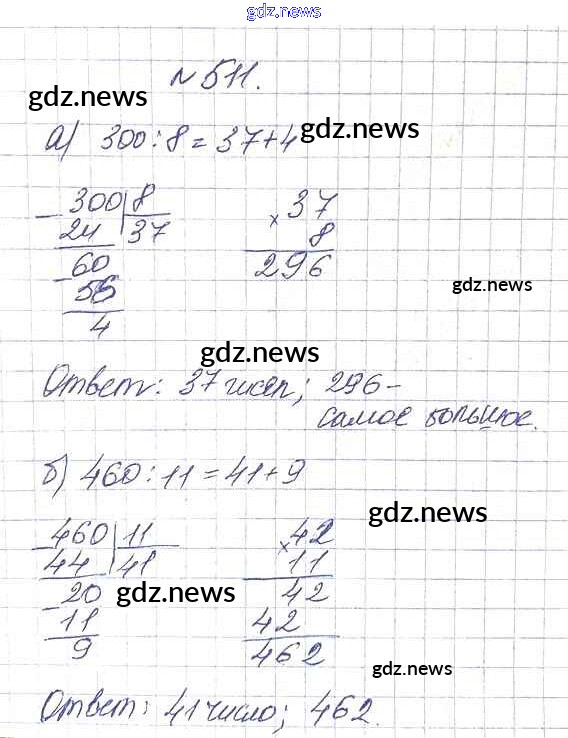 gdz.news
gdz.news
№ 511.
gdz.news
а) 300 : 8 = 37 + 4
gdz.news
300 | 8
24 37
60
56
4
× 37
8
296
gdz.news
gdz.news
Ответ: 37 чисел; 296 -
самое большое.
б) 460 : 11 = 41 + 9
gdz.news
460 | 11
44 41
20
11
9
gdz.news
× 42
11
42
42
462
gdz.news
Ответ: 41 число; 462.